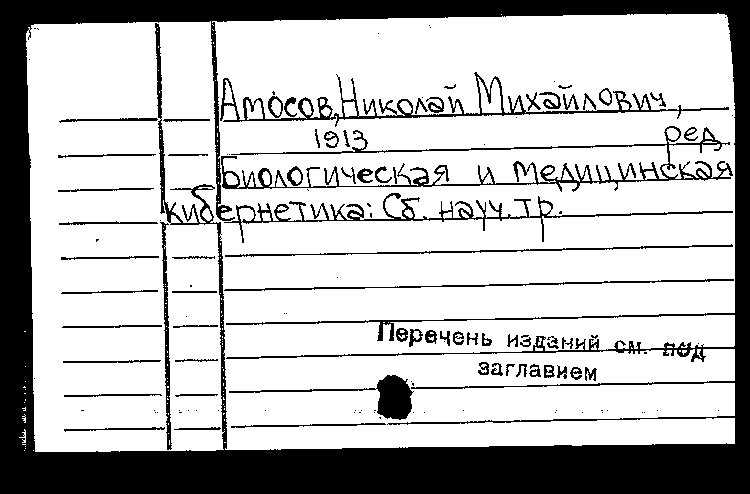 Амосов, Николай Михайлович,
1913 ред
Биологическая и медицинская
кибернетика: Сб. науч. тр.
Перечень изданий см. под
заглавием